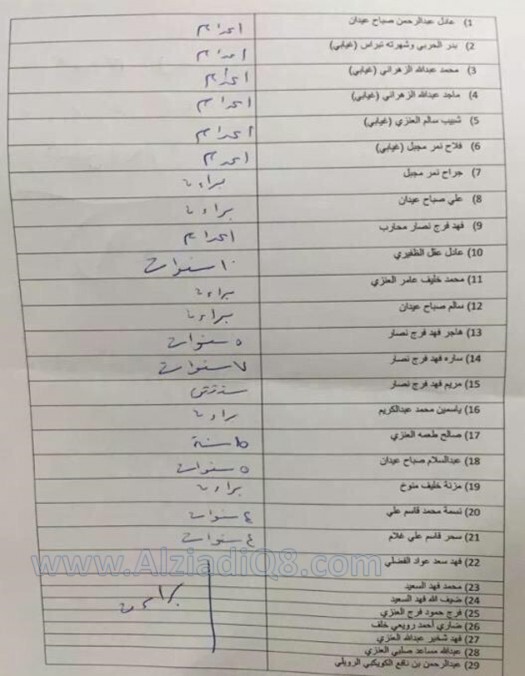 1) عادل عبدالرحمن صباح عيدان اعدام
2) بدر الحربي وشهرته نبراس (غيابي) اعدام
3) محمد عبدالله الزهراني (غيابي) اعدام
4) ماجد عبدالله الزهراني (غيابي) اعدام
5) شبيب سالم العنزي (غيابي) اعدام
6) فلاح نمر مجبل (غيابي) اعدام
7) جراح نمر مجبل براءة
8) علي صباح عيدان براءة
9) فهد فرج نصار محارب اعدام
10) عادل عقل الظفيري ١٠ سنوات
11) محمد خليف عامر العنزي براءة
12) سالم صباح عيدان براءة
13) هاجر فهد فرج نصار ٥ سنوات
14) ساره فهد فرج نصار ٧ سنوات
15) مريم فهد فرج نصار سنتين
16) ياسمين محمد عبدالكريم براءة
17) صالح طعمه العنزي سنة
18) عبدالسلام صباح عيدان ٥ سنوات
19) مزنة خليف منوخ براءة
20) نسمة محمد قاسم علي ٤ سنوات
21) سحر قاسم علي غلام ٤ سنوات
22) فهد سعد عواد الفضلي
www.AlziadiQ8.com
23) محمد فهد السعيد
24) ضيف الله فهد السعيد براءة
25) فرج حمود فرج العنزي
26) ضاري أحمد رويعي خلف
27) فهد شخير عبدالله العنزي
28) عبدالله مساعد صلبي العنزي
29) عبدالرحمن بن نافع الكويكبي الرويلي